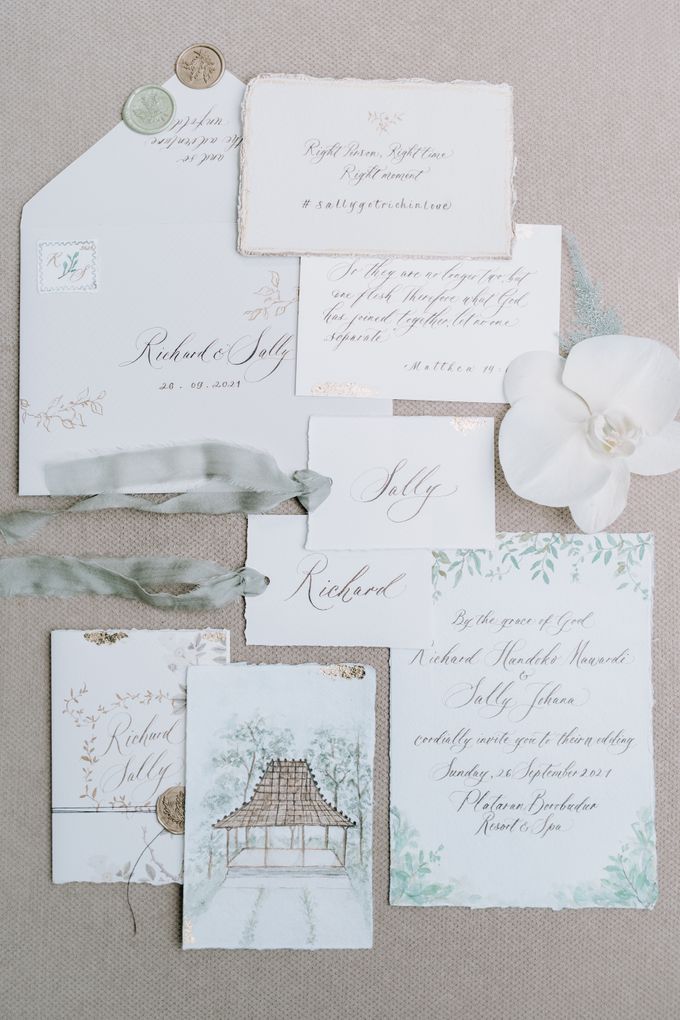 and so
the adventure
unfold
Right Person, Right time
Right moment
#sallygotrichinlove
So they are no longer two, but
one flesh. Therefore what God
has joined together, let no one
separate
- Matthew 19:
R S
Richard & Sally
26 . 09 . 2021
Sally
Richard
By the grace of God
Richard Handoko Mawardi
&
Sally Johana
cordially invite you to their wedding
Sunday, 26 September 2021
Plataran Borobudur
Resort & Spa
Richard
Sally